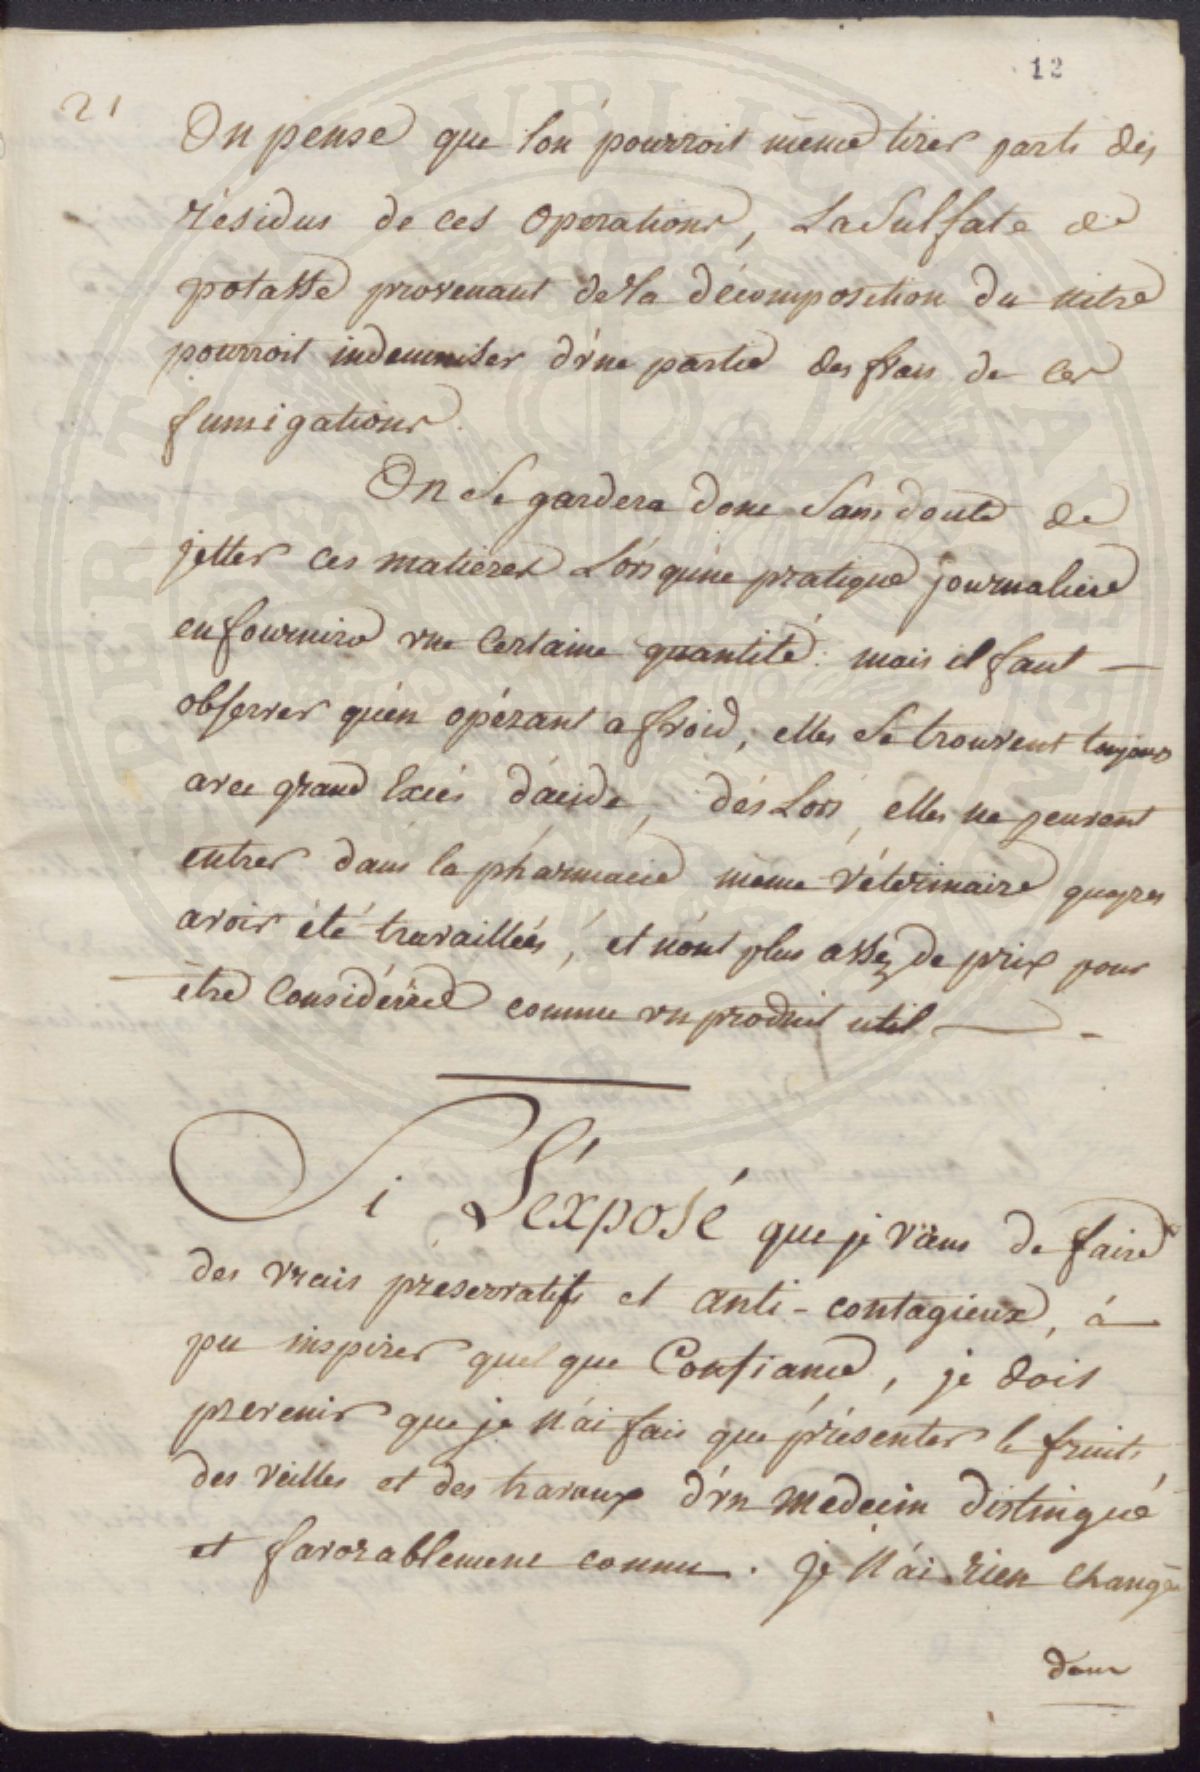 12
21
On pense que l'on pourroit même tirer parti des
résidus de ces opérations, La Sulfate de
potasse provenant de la décomposition du nitre
pourroit indemniser d'vne partie des frais de ces
fumigations.
On Se gardera donc Sans doute de
jetter ces matieres Lorsqu'une pratique journaliere
en fournira vne certaine quantité: mais il faut
observer qu'en opérant a froid, elles Se trouvent toujours
avec grand Excés d'acide, dés Lors, elles ne peuvent
entrer dans la pharmacie même véterinaire qu'apres
avoir été travaillées, et n'ont plus assez de prix pour
être Considéreé comme vn produit util
Si L'éxposé que je viens de faire
des vrais préservatifs et anti-contagieux, à
pu inspirer quelque Confiance, je dois
prevenir que je n'ai fais que présenter le fruits
des veilles et des travaux d'vn medecin distingué
et favorablement connu. je n'ai rien changé
dans